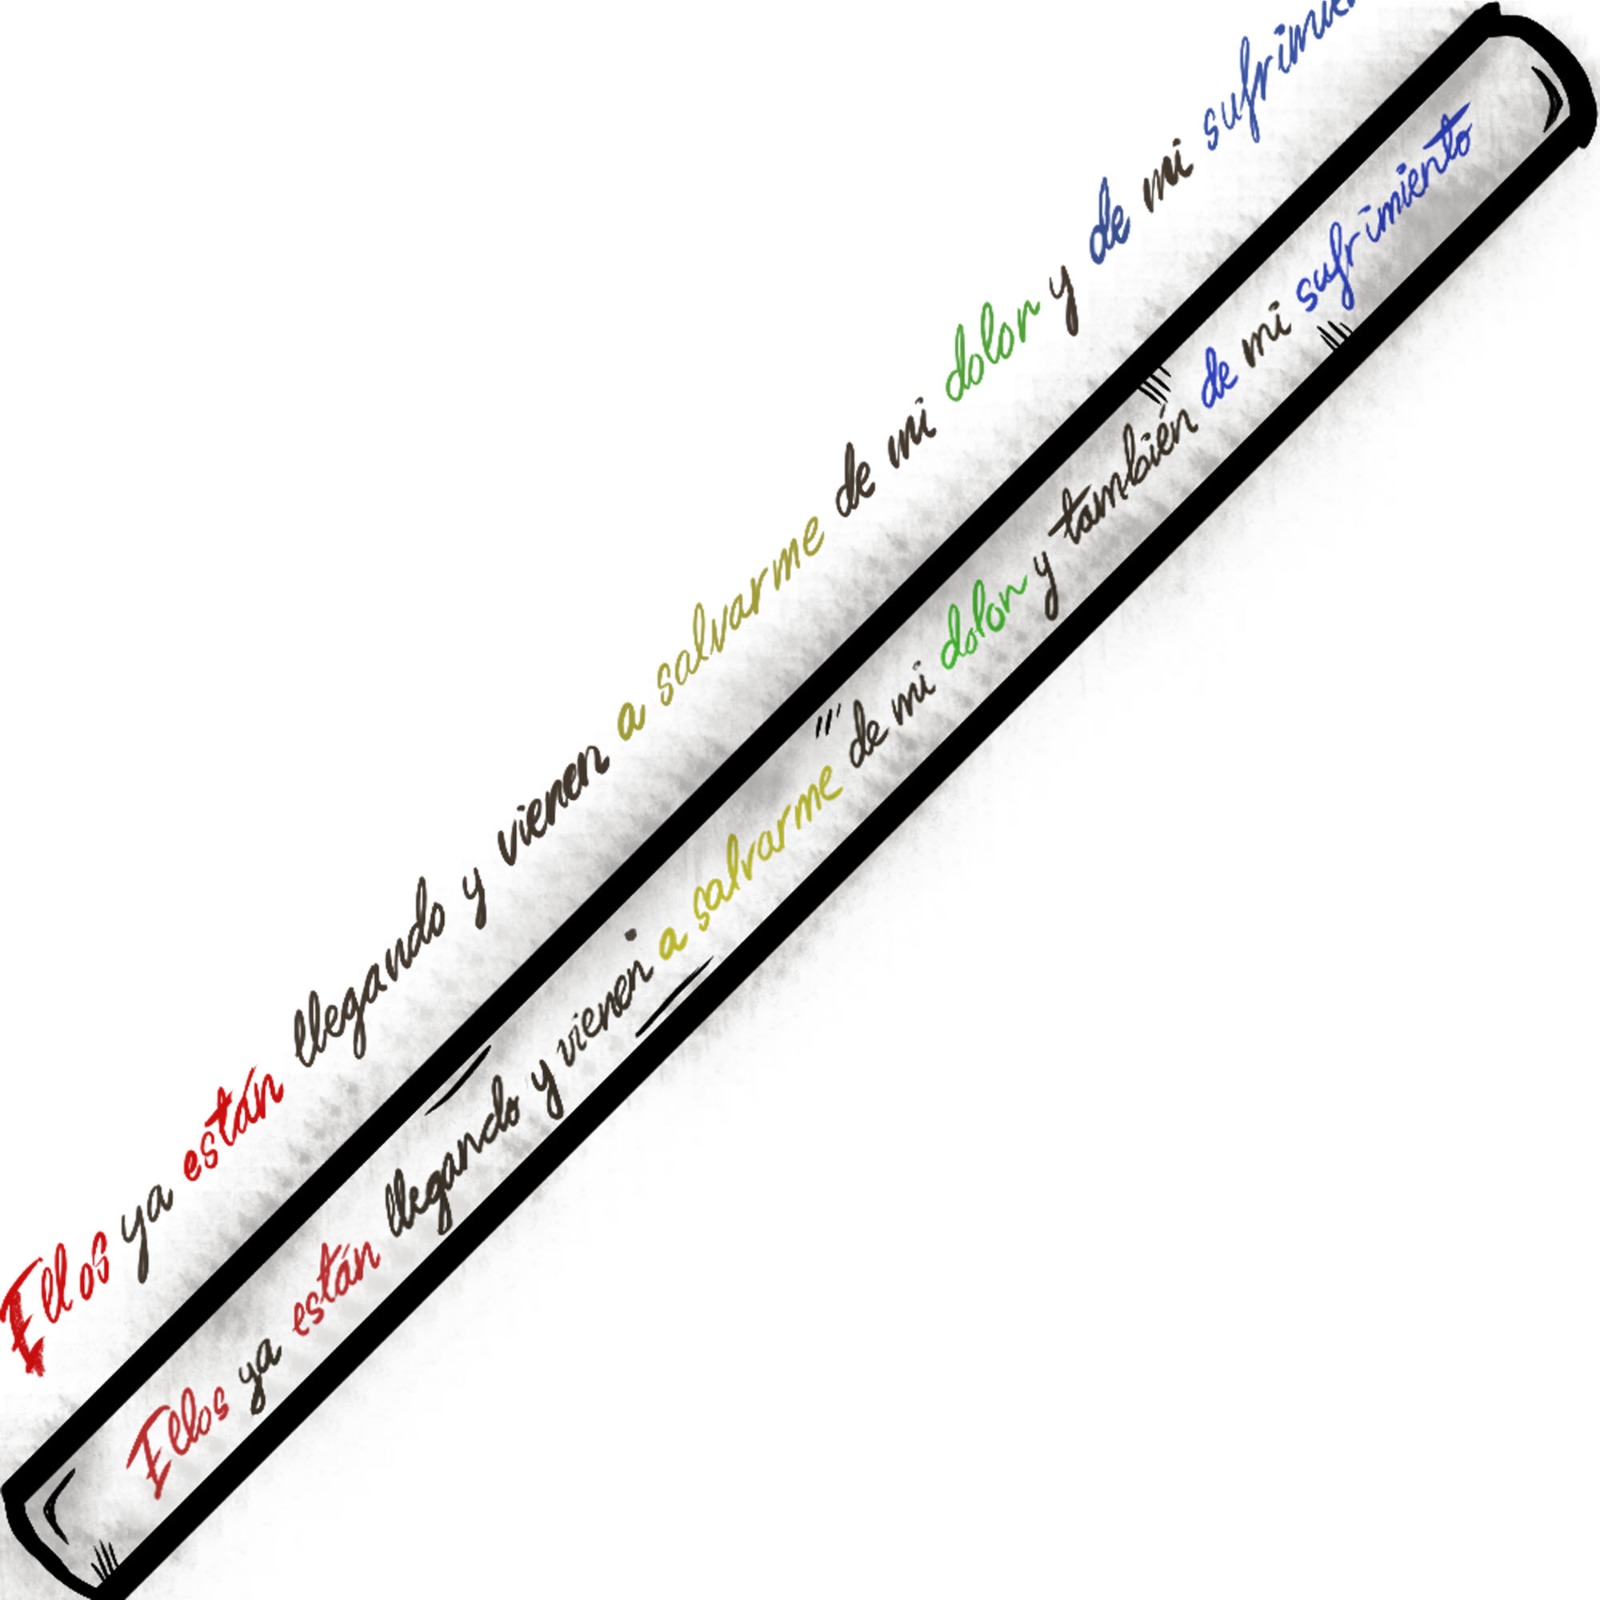 Ellos ya están llegando y vienen a salvarme de mi dolor y de mi
Ellos ya están llegando y vienen a salvarme de mi dolor y también de mi sufrimiento